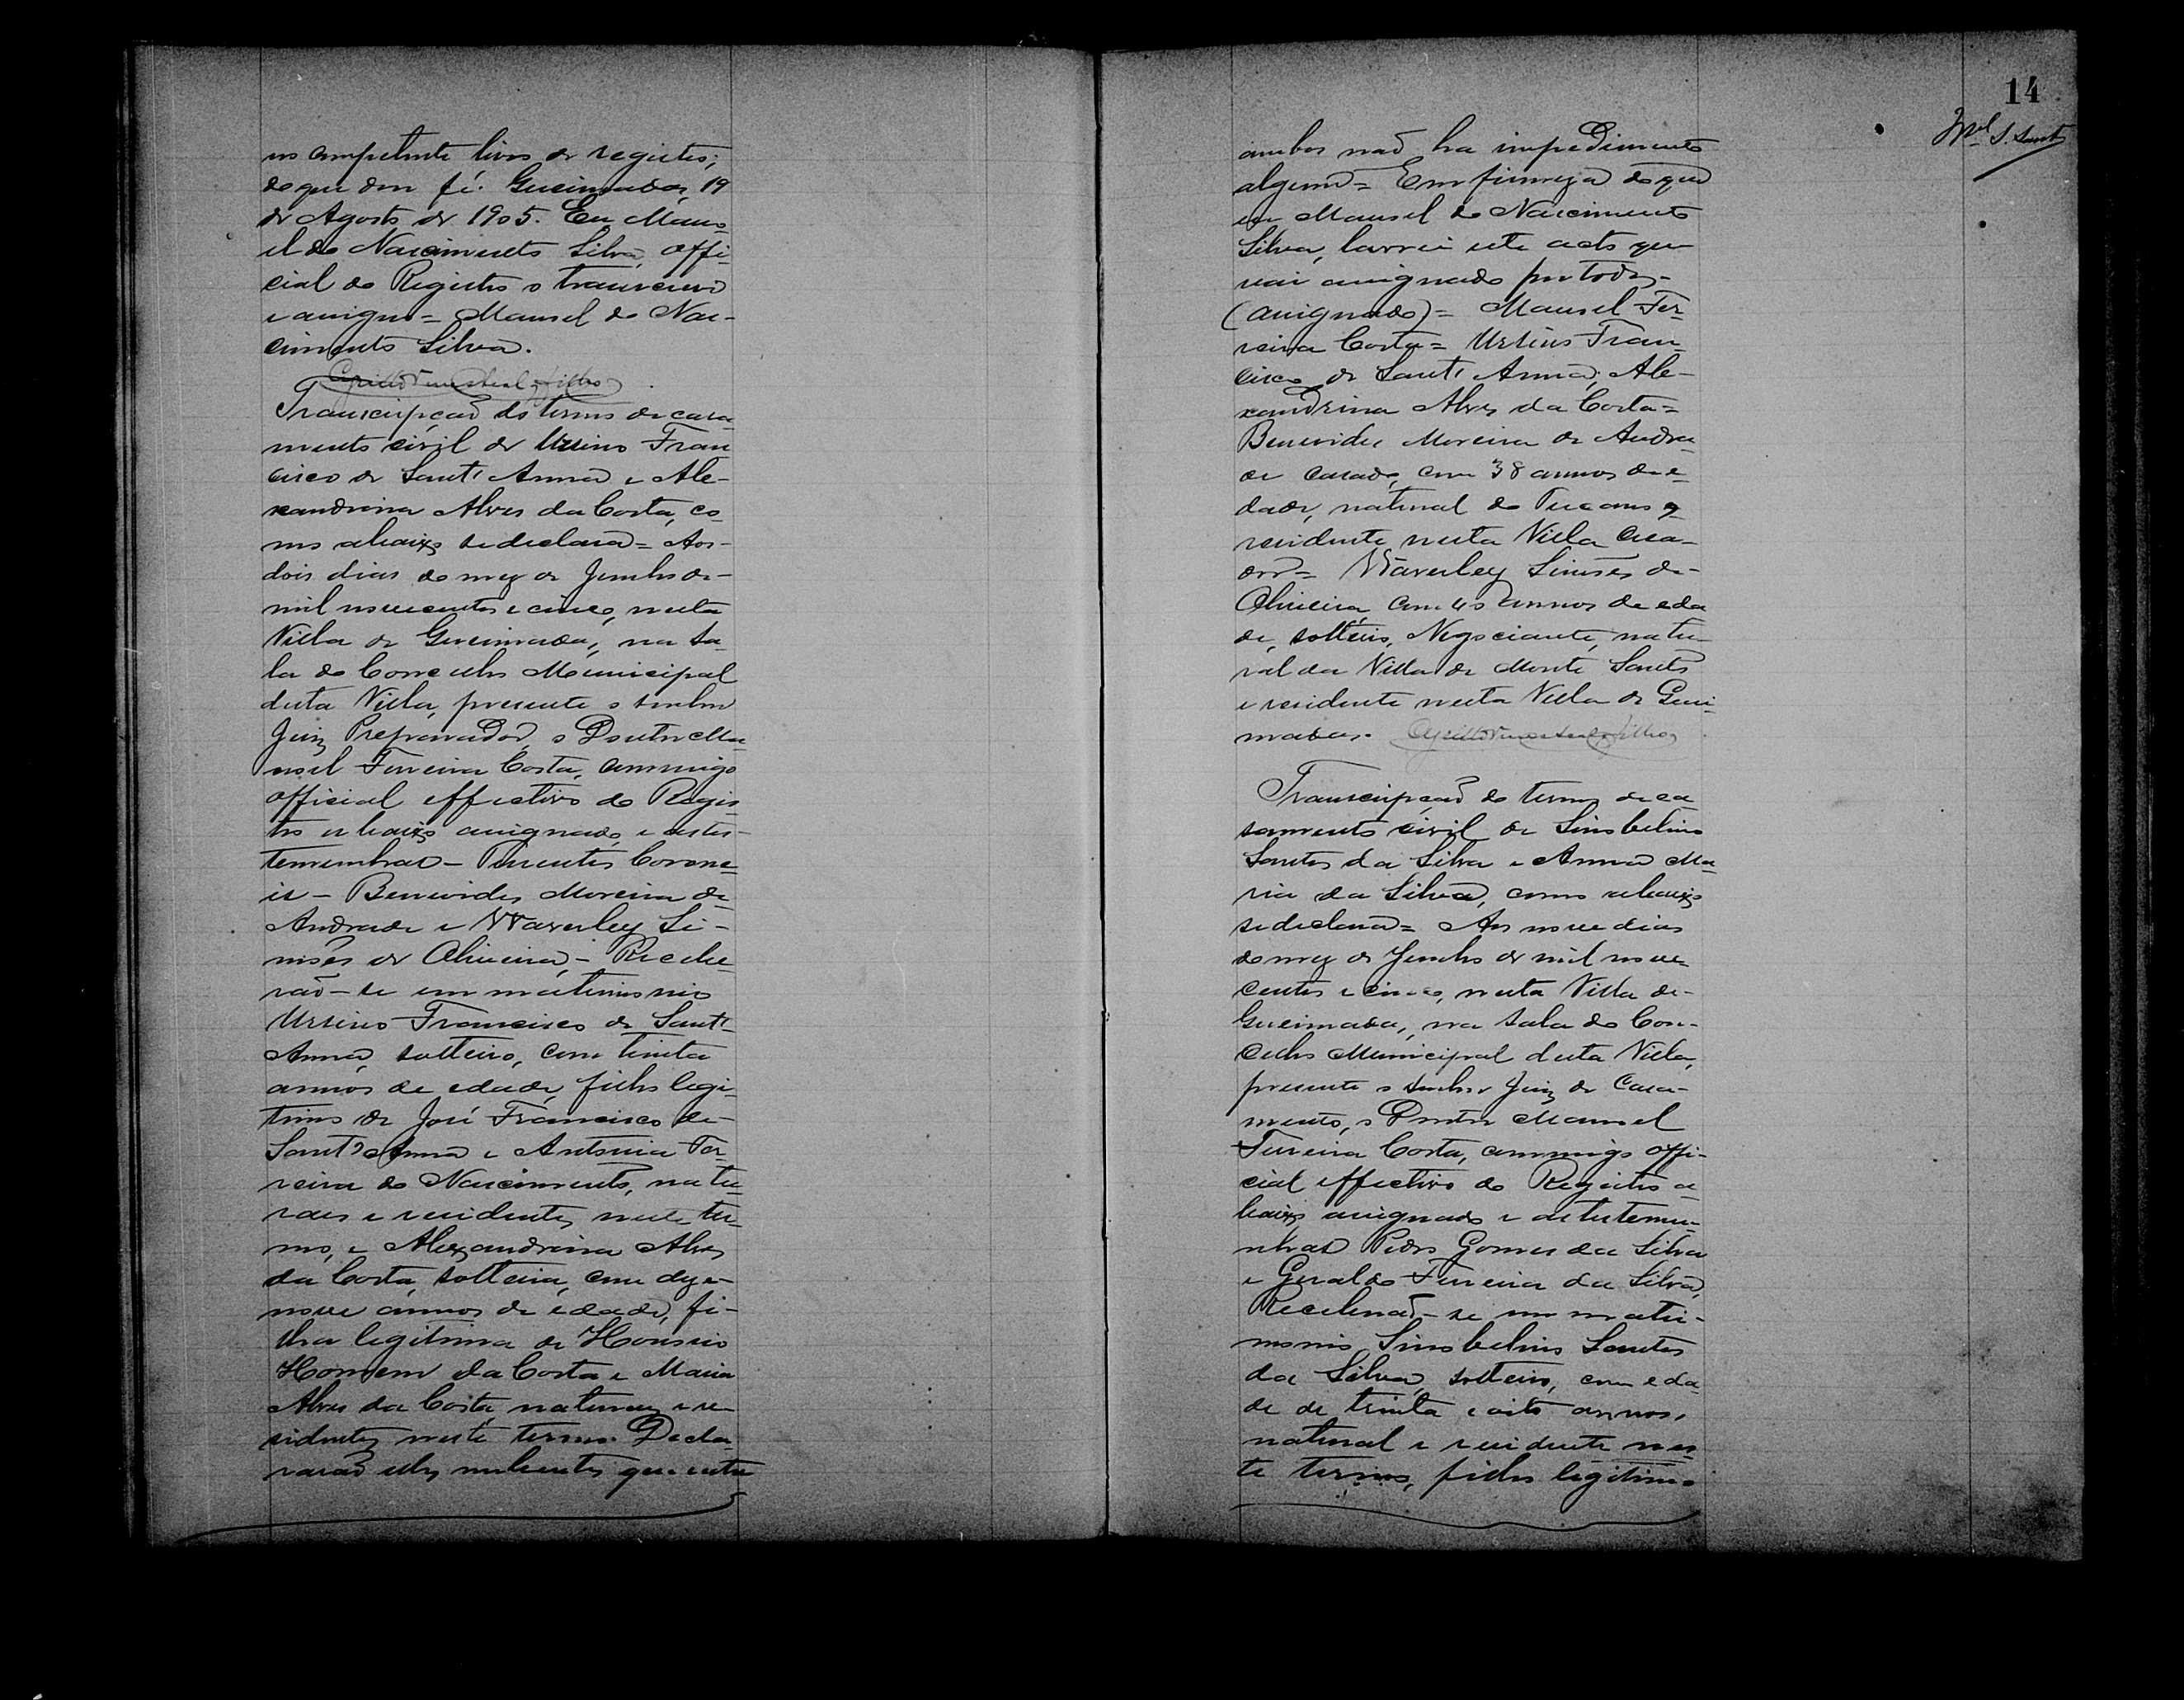 no competente livro de registro;
do que dou fé. Queimadas, 19
de Agosto de 1905. Eu Mano-
el do Nascimento Silva, offi-
cial do Registro o transcrevi
e assigno = Manoel do Nas-
cimento Silva.
Transcripção do termo de casa-
mento civil de Ursino Fran-
cisco de Sant' Anna e Ale-
xandrina Alves da Costa, co-
mo abaixo se declara = Aos-
dois dias do mez de Junho de-
mil novecentos e cinco, nesta
Villa de Queimadas, na sa-
la do Concelho Municipal
desta Villa, presente o senhor
Juiz Preparador, o Doutor Ma-
noel Ferreira Costa, commigo
official effectivo do Regis-
tro abaixo assignado, e as tes-
temunhas - Tenentes Corone-
is - Benevides Moreira de
Andrade e Waverley Si-
mões de Oliveira, - Recebe-
rão-se em matrimonio
Ursino Francisco de Sant'
Anna, solteiro, com trinta
annos de edade, filho legi-
timo de José Francisco de-
Sant' Anna e Antonia Fer-
reira do Nascimento, natu-
raes e residentes neste ter-
mo, e Alexandrina Alves
da Costa, solteira, com deze-
nove annos de edade, fi-
lha legitima de
Homem da Costa e Maria
Alves da Costa, naturaes e re-
sidentes neste termo. Decla-
rarão elles nubentes que entre
14
ambos não ha impedimento
algum = Em firmeza do que
eu Manoel do Nascimento
Silva, lavrei este acto que
vai assignado por todos -
(assignado) = Manoel Fer-
reira Costa = Ursino Fran-
cisco de Sant' Anna, Ale-
xandrina Alves da Costa =
Benevides Moreira de Andra-
de casado, com 38 annos de e-
dade, natural do Tucano e
residente nesta Villa Crea-
dor = Waverley Simões de-
Oliveira, com 40 annos de eda
de, solteiro, Negociante, natu-
ral da Villa de Monte Santo
e residente nesta Villa de Quei-
madas.
Transcripção do termo de ca
samento civil de Sinobelino
Santos da Silva e Anna Ma-
ria da Silva, como abaixo
se declara = Aos nove dias
do mez de Junho de mil nove
centos e cinco, nesta Villa de-
Queimadas, na sala do Con-
celho Municipal desta Villa,
presente o senhor Juiz de Casa-
mento, o Doutor Manoel
Ferreira Costa, commigo offi-
cial effectivo do Registro a-
baixo assignado e as testemu-
nhas Pedro Gomes da Silva
e Geraldo Ferreira da Silva,
Receberão-se em matri-
monio Sinobelino Santos
da Silva, solteiro, com eda
de de trinta e oito annos,
natural e residente nes-
te termo, filho legitimo